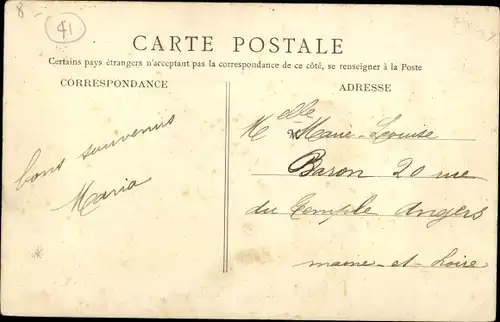 8
41
CARTE POSTALE
Certains pays étrangers n'acceptant pas la correspondance de ce côté, se renseigner à la Poste
CORRESPONDANCE
ADRESSE
bons souvenirs
Maria
Melle Marie-Louise
Baron 20 rue
du Temple Angers
maine-et-Loire